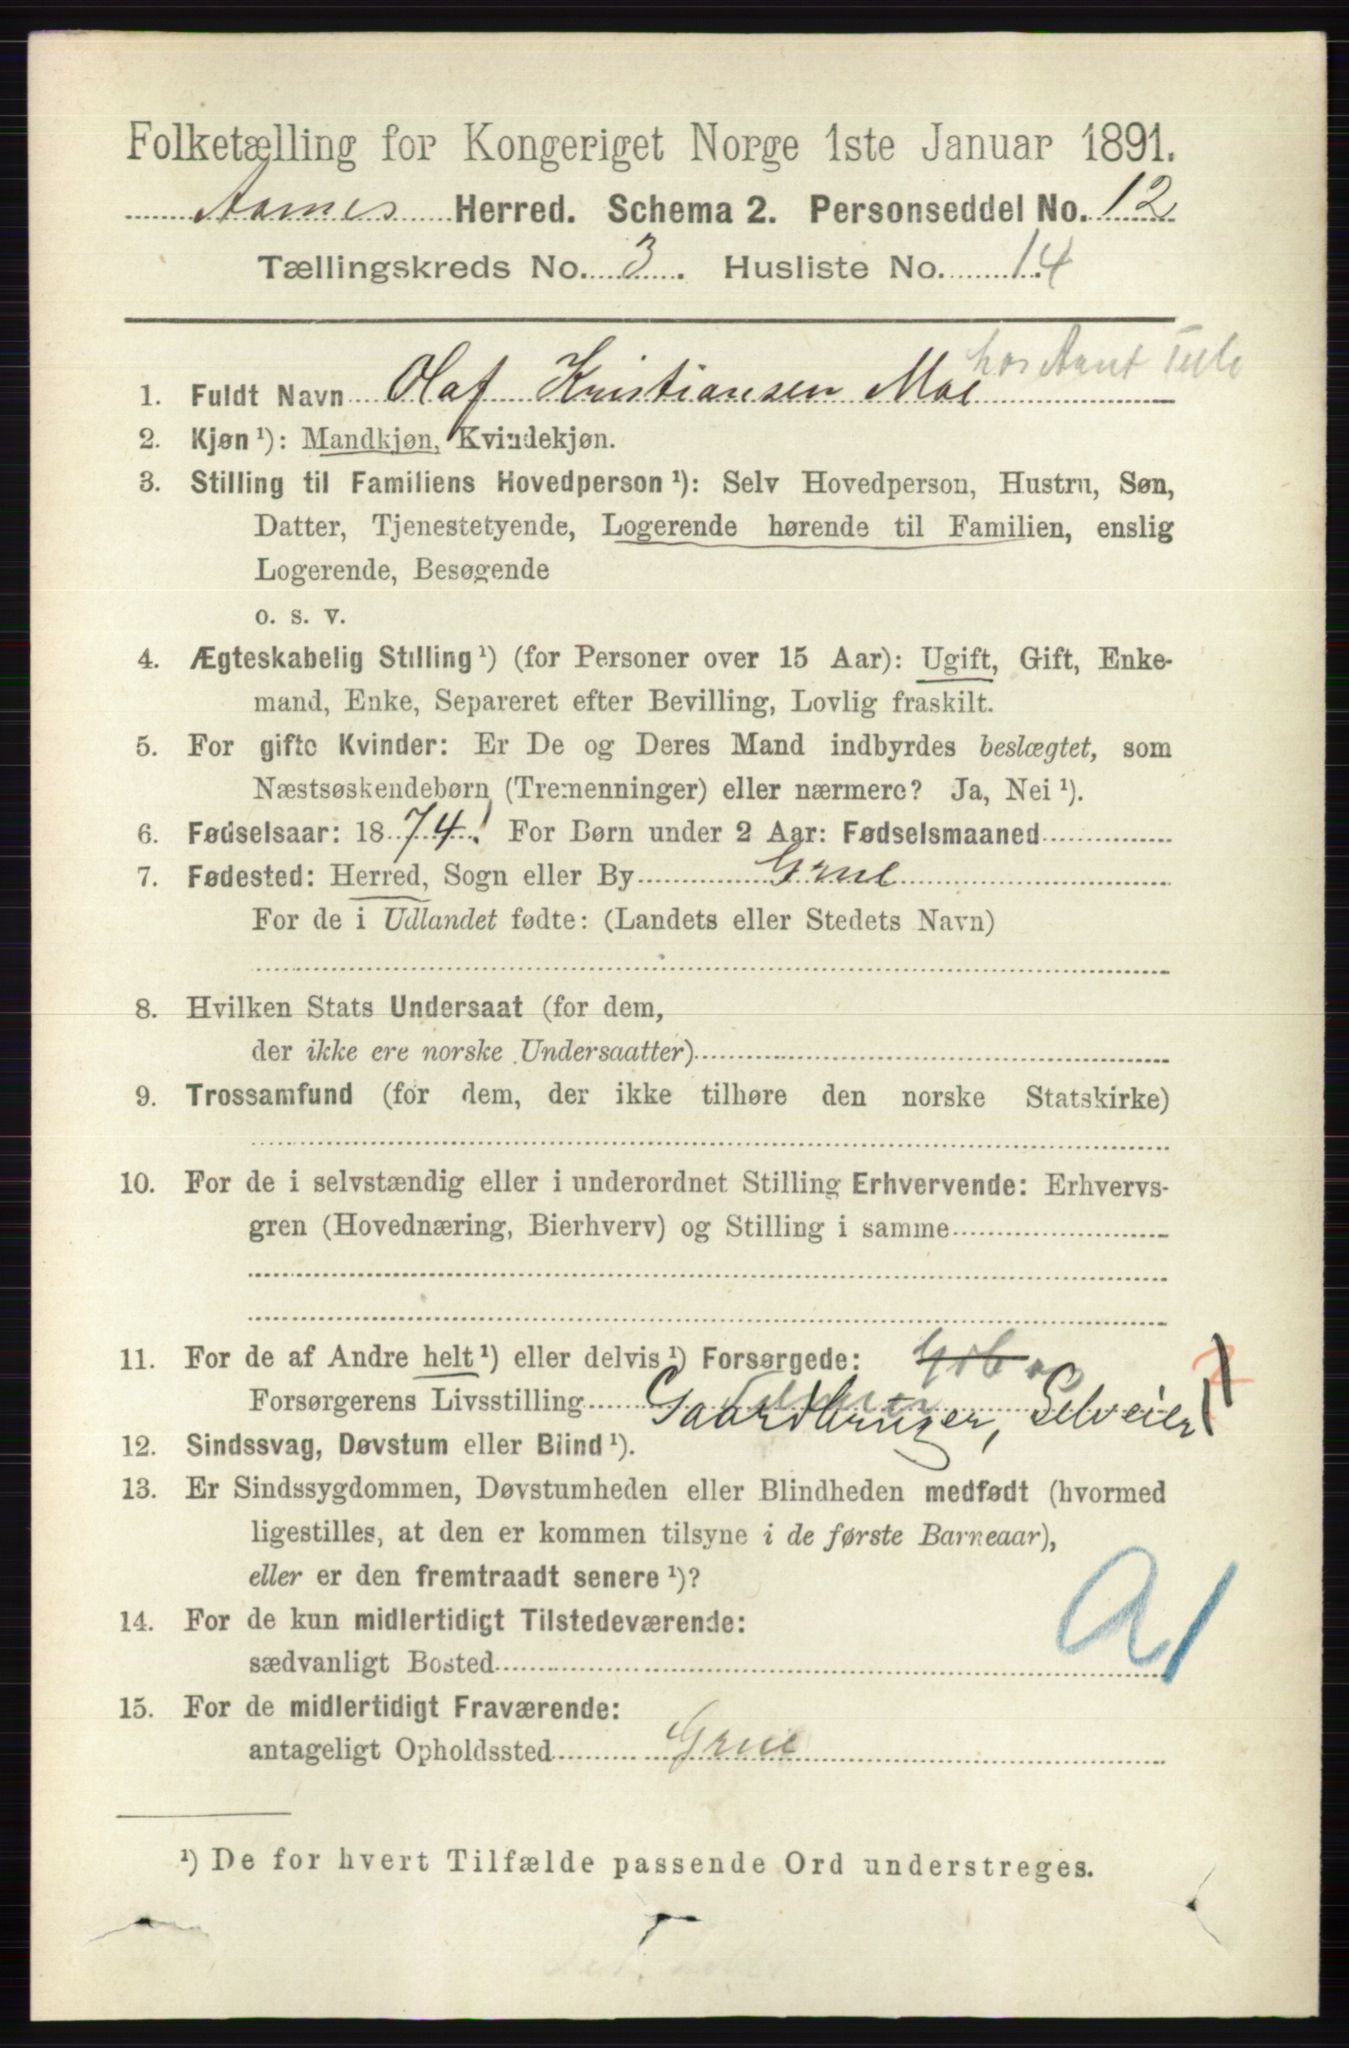 Folketælling for Kongeriget Norge 1ste Januar 1891.
Aasnes Herred. Schema 2. Personseddel No. 12
Tællingskreds No. 3. Husliste No. 14
hos
1. Fuldt Navn Olaf Kristiansen Moe
2. Kjøn¹): Mandkjøn, Kvindekjøn.
3. Stilling til Familiens Hovedperson¹): Selv Hovedperson, Hustru, Søn,
Datter, Tjenestetyende, Logerende hørende til Familien, enslig
Logerende, Besøgende
o. s. v.
4. Ægteskabelig Stilling¹) (for Personer over 15 Aar): Ugift, Gift, Enke-
mand, Enke, Separeret efter Bevilling, Lovlig fraskilt.
5. For gifte Kvinder: Er De og Deres Mand indbyrdes beslægtet, som
Næstsøskendebørn (Tremenninger) eller nærmere? Ja, Nei¹).
6. Fødselsaar: 1874. For Børn under 2 Aar: Fødselsmaaned
7. Fødested: Herred, Sogn eller By Grue
For de i Udlandet fødte: (Landets eller Stedets Navn)
8. Hvilken Stats Undersaat (for dem,
der ikke ere norske Undersaatter)
9. Trossamfund (for dem, der ikke tilhøre den norske Statskirke)
10. For de i selvstændig eller i underordnet Stilling Erhvervende: Erhvervs-
gren (Hovednæring, Bierhverv) og Stilling i samme
11. For de af Andre helt¹) eller delvis¹) Forsørgede:
Forsørgerens Livsstilling Gaardbruger, Selveier
12. Sindssvag, Døvstum eller Blind¹).
13. Er Sindssygdommen, Døvstumheden eller Blindheden medfødt (hvormed
ligestilles, at den er kommen tilsyne i de første Barneaar),
eller er den fremtraadt senere¹)?
A1
14. For de kun midlertidigt Tilstedeværende:
sædvanligt Bosted
15. For de midlertidigt Fraværende:
antageligt Opholdssted Grue
¹) De for hvert Tilfælde passende Ord understreges.